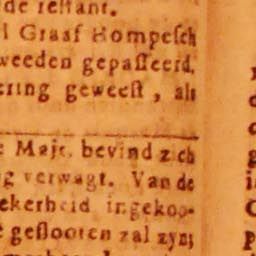 de restant.
l Graaf Bompesch
weeden gepasseerd,
ering geweest, als
Maje. bevind zich
g verwagt. Van de
ekerheid ingekoo-
geslooten zal zyn;